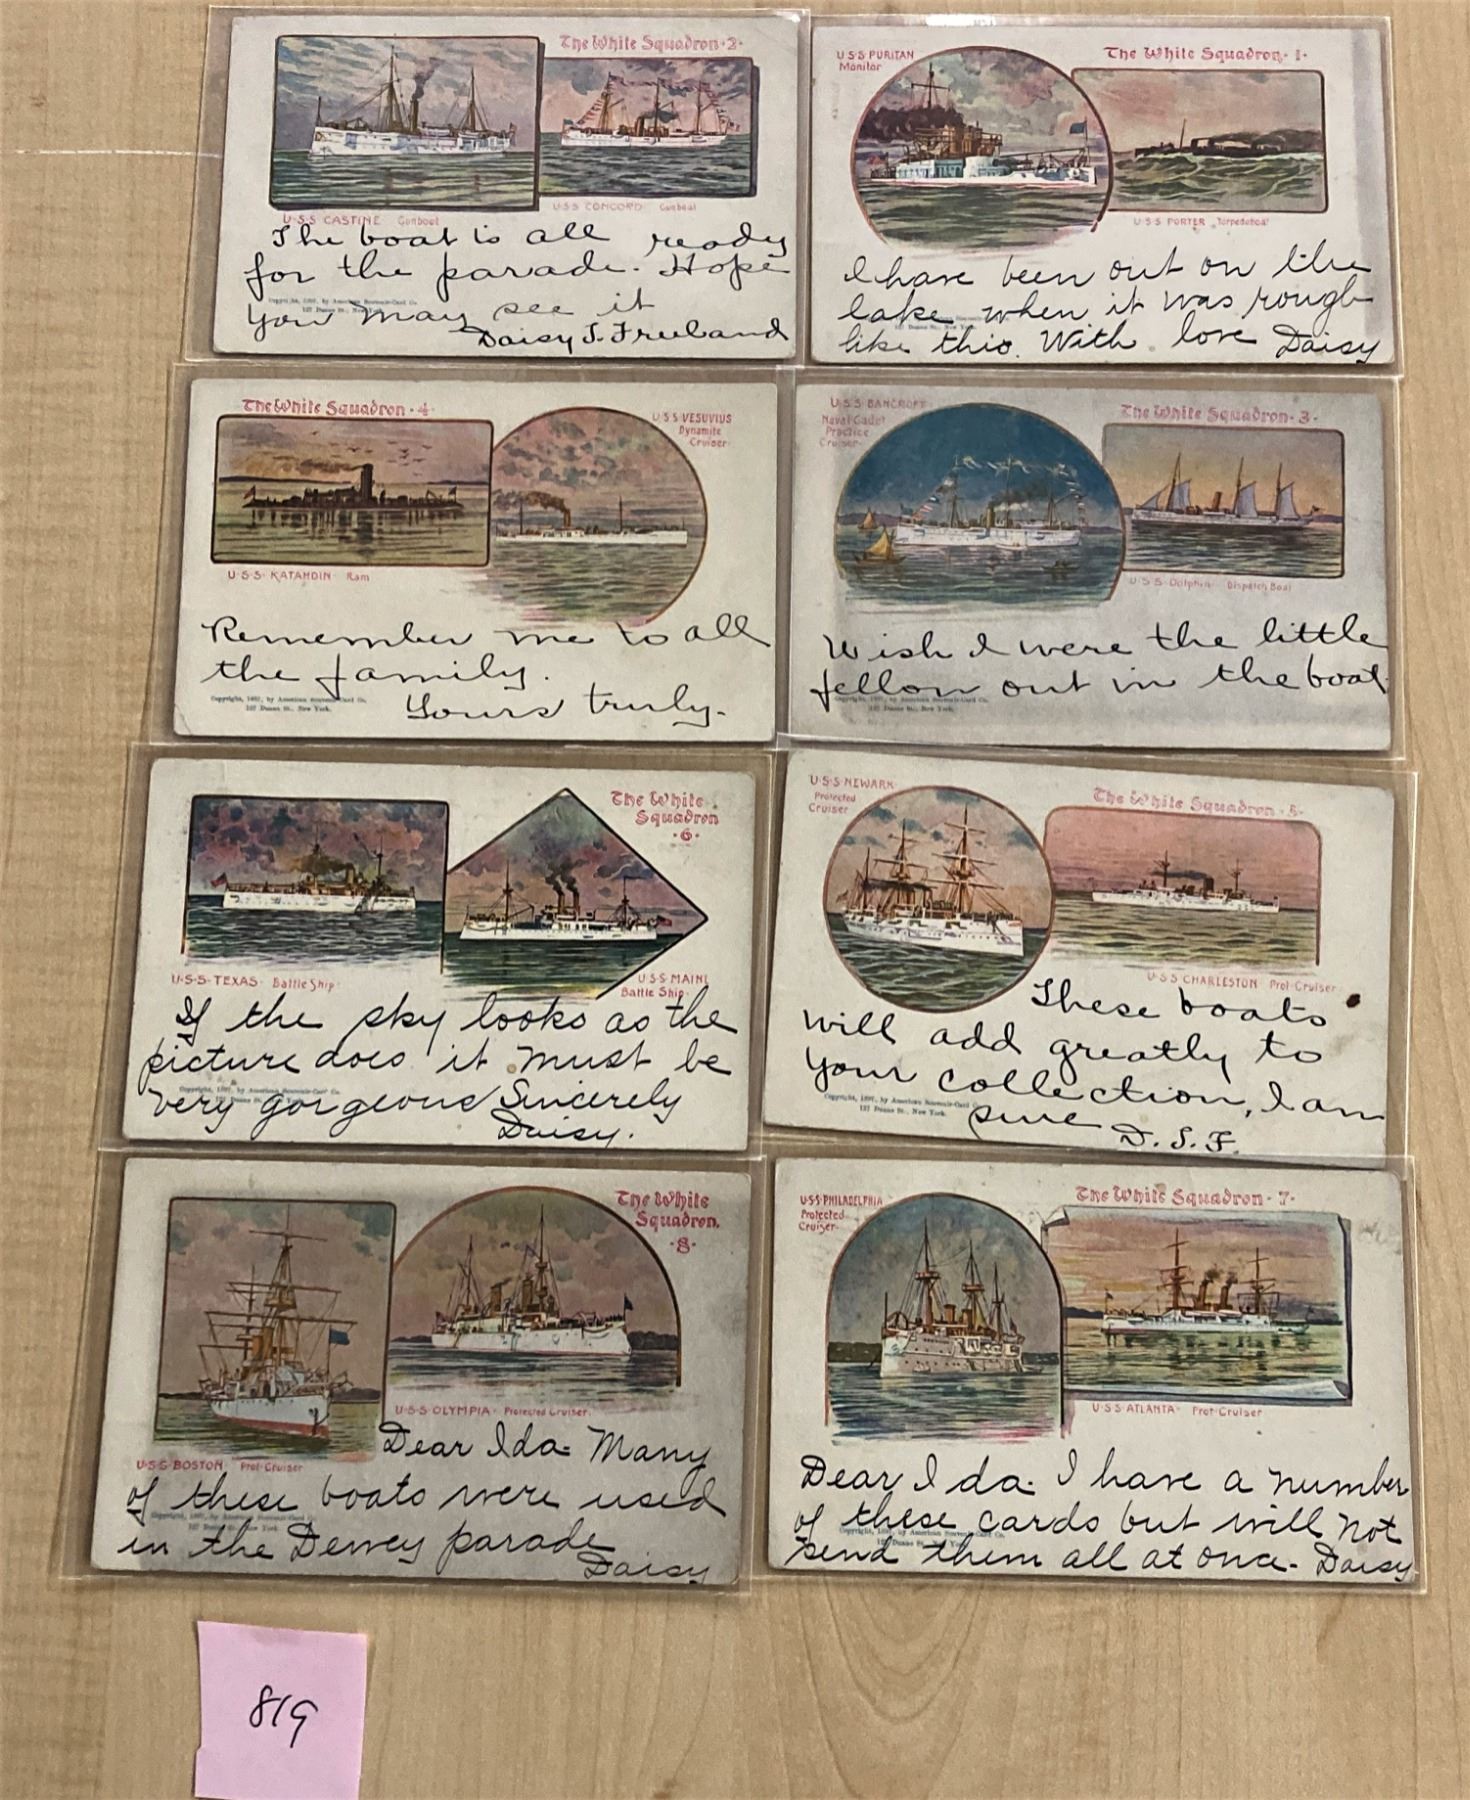 The White Squadron · 2 ·
U·S·S CASTINE Gunboat
U·S·S CONCORD Gunboat
The boat is all ready
for the parade. Hope
Copyright, 1897, by American Souvenir-Card Co.
127 Duane St., New York.
you may see it
Daisy S. Freeland
U·S·S PURITAN
Monitor
The White Squadron · 1 ·
U·S·S PORTER Torpedoboat
I have been out on the
lake when it was rough
like this. With love Daisy
The White Squadron · 4 ·
U·S·S·VESUVIUS
Dynamite
Cruiser·
U·S·S· KATAHDIN· Ram
Remember me to all
the family.
Copyright, 1897, by American Souvenir-Card Co.
127 Duane St., New York.
Yours truly.
U·S·S·BANCROFT·
Naval Cadet
Practice
Cruiser·
The White Squadron · 3 ·
U·S·S·Dolphin· Dispatch Boat
Wish I were the little
fellow out in the boat
Copyright, 1897, by American Souvenir-Card Co.
127 Duane St., New York.
The White
Squadron
· 6 ·
U·S·S·TEXAS· Battle Ship·
U·S·S·MAINE
Battle Ship·
If the sky looks as the
picture does it must be
Copyright, 1897, by American Souvenir-Card Co.
127 Duane St., New York.
very gorgeous Sincerely
Daisy.
U·S·S·NEWARK
Protected
Cruiser
The White Squadron · 5 ·
U·S·S CHARLESTON Prot·Cruiser·
These boats
will add greatly to
your collection, I am
Copyright, 1897, by American Souvenir-Card Co.
127 Duane St., New York.
sure
D. S. F.
The White
Squadron.
· 8 ·
U·S·S·OLYMPIA· Protected Cruiser.
U·S·S·BOSTON Prot·Cruiser
Dear Ida· Many
of these boats were used
Copyright, 1897, by American Souvenir-Card Co.
127 Duane St., New York.
in the Dewey parade
Daisy
U·S·S·PHILADELPHIA
Protected
Cruiser·
The White Squadron · 7 ·
U·S·S·ATLANTA· Prot·Cruiser
Dear Ida· I have a number
of these cards but will not
Copyright, 1897, by American Souvenir-Card Co.
127 Duane St., New York.
send them all at once· Daisy
819